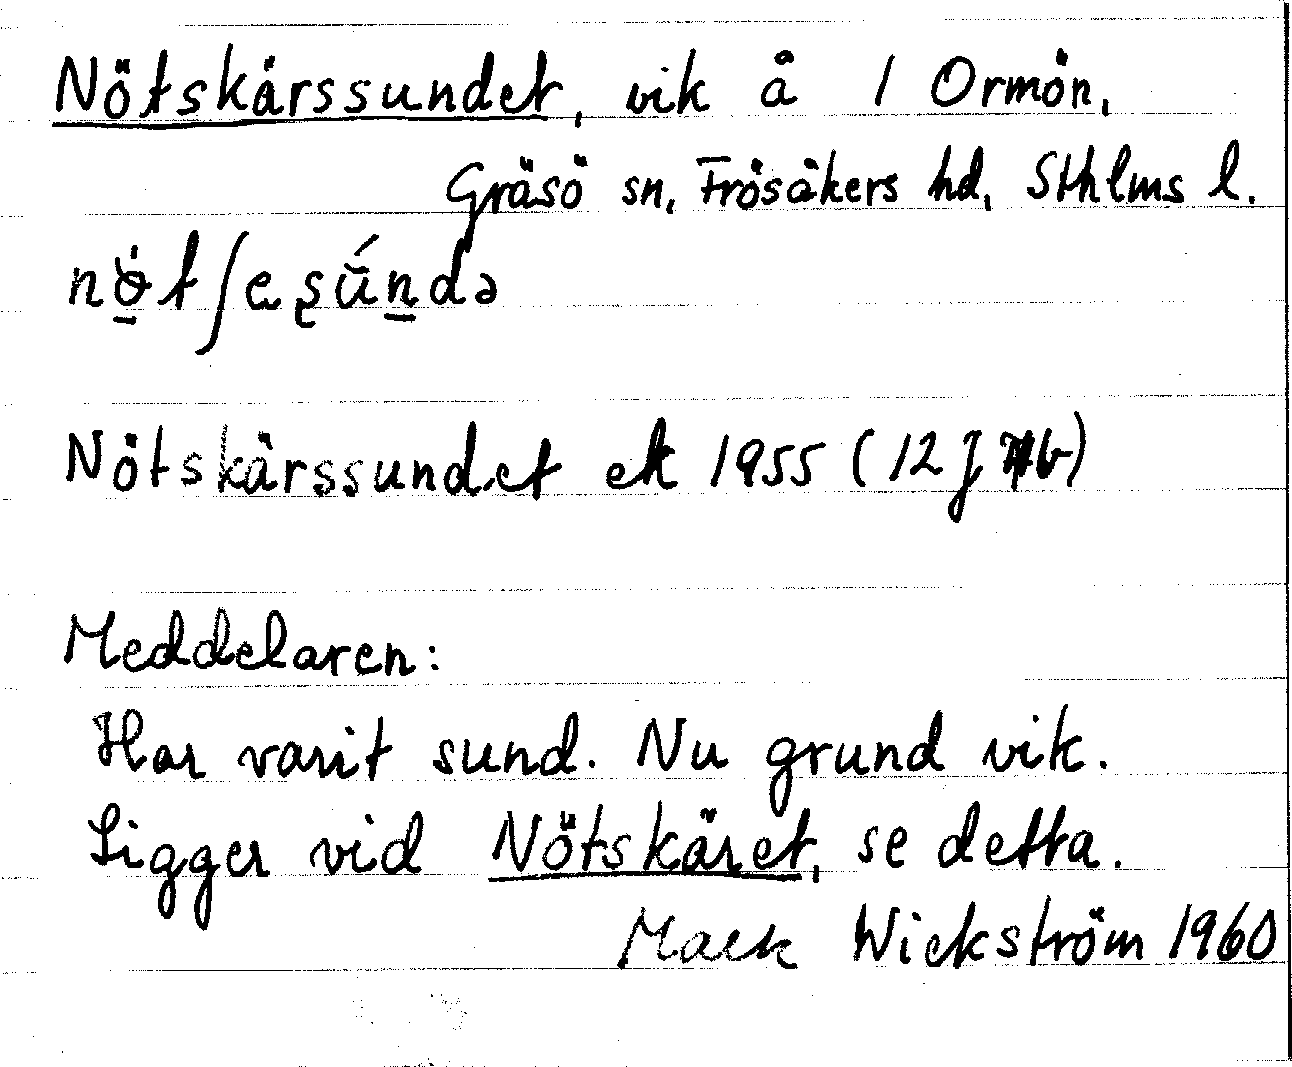 Nötskärssundet, vik å 1 Ormön,
Gräsö sn, Frösåkers hd, Sthlms l.
Nötskärssundet ek 1955 (12 J
Meddelaren:
Har varit sund. Nu grund vik.
Ligger vid Nötskäret, se detta.
Mack Wickström 1960